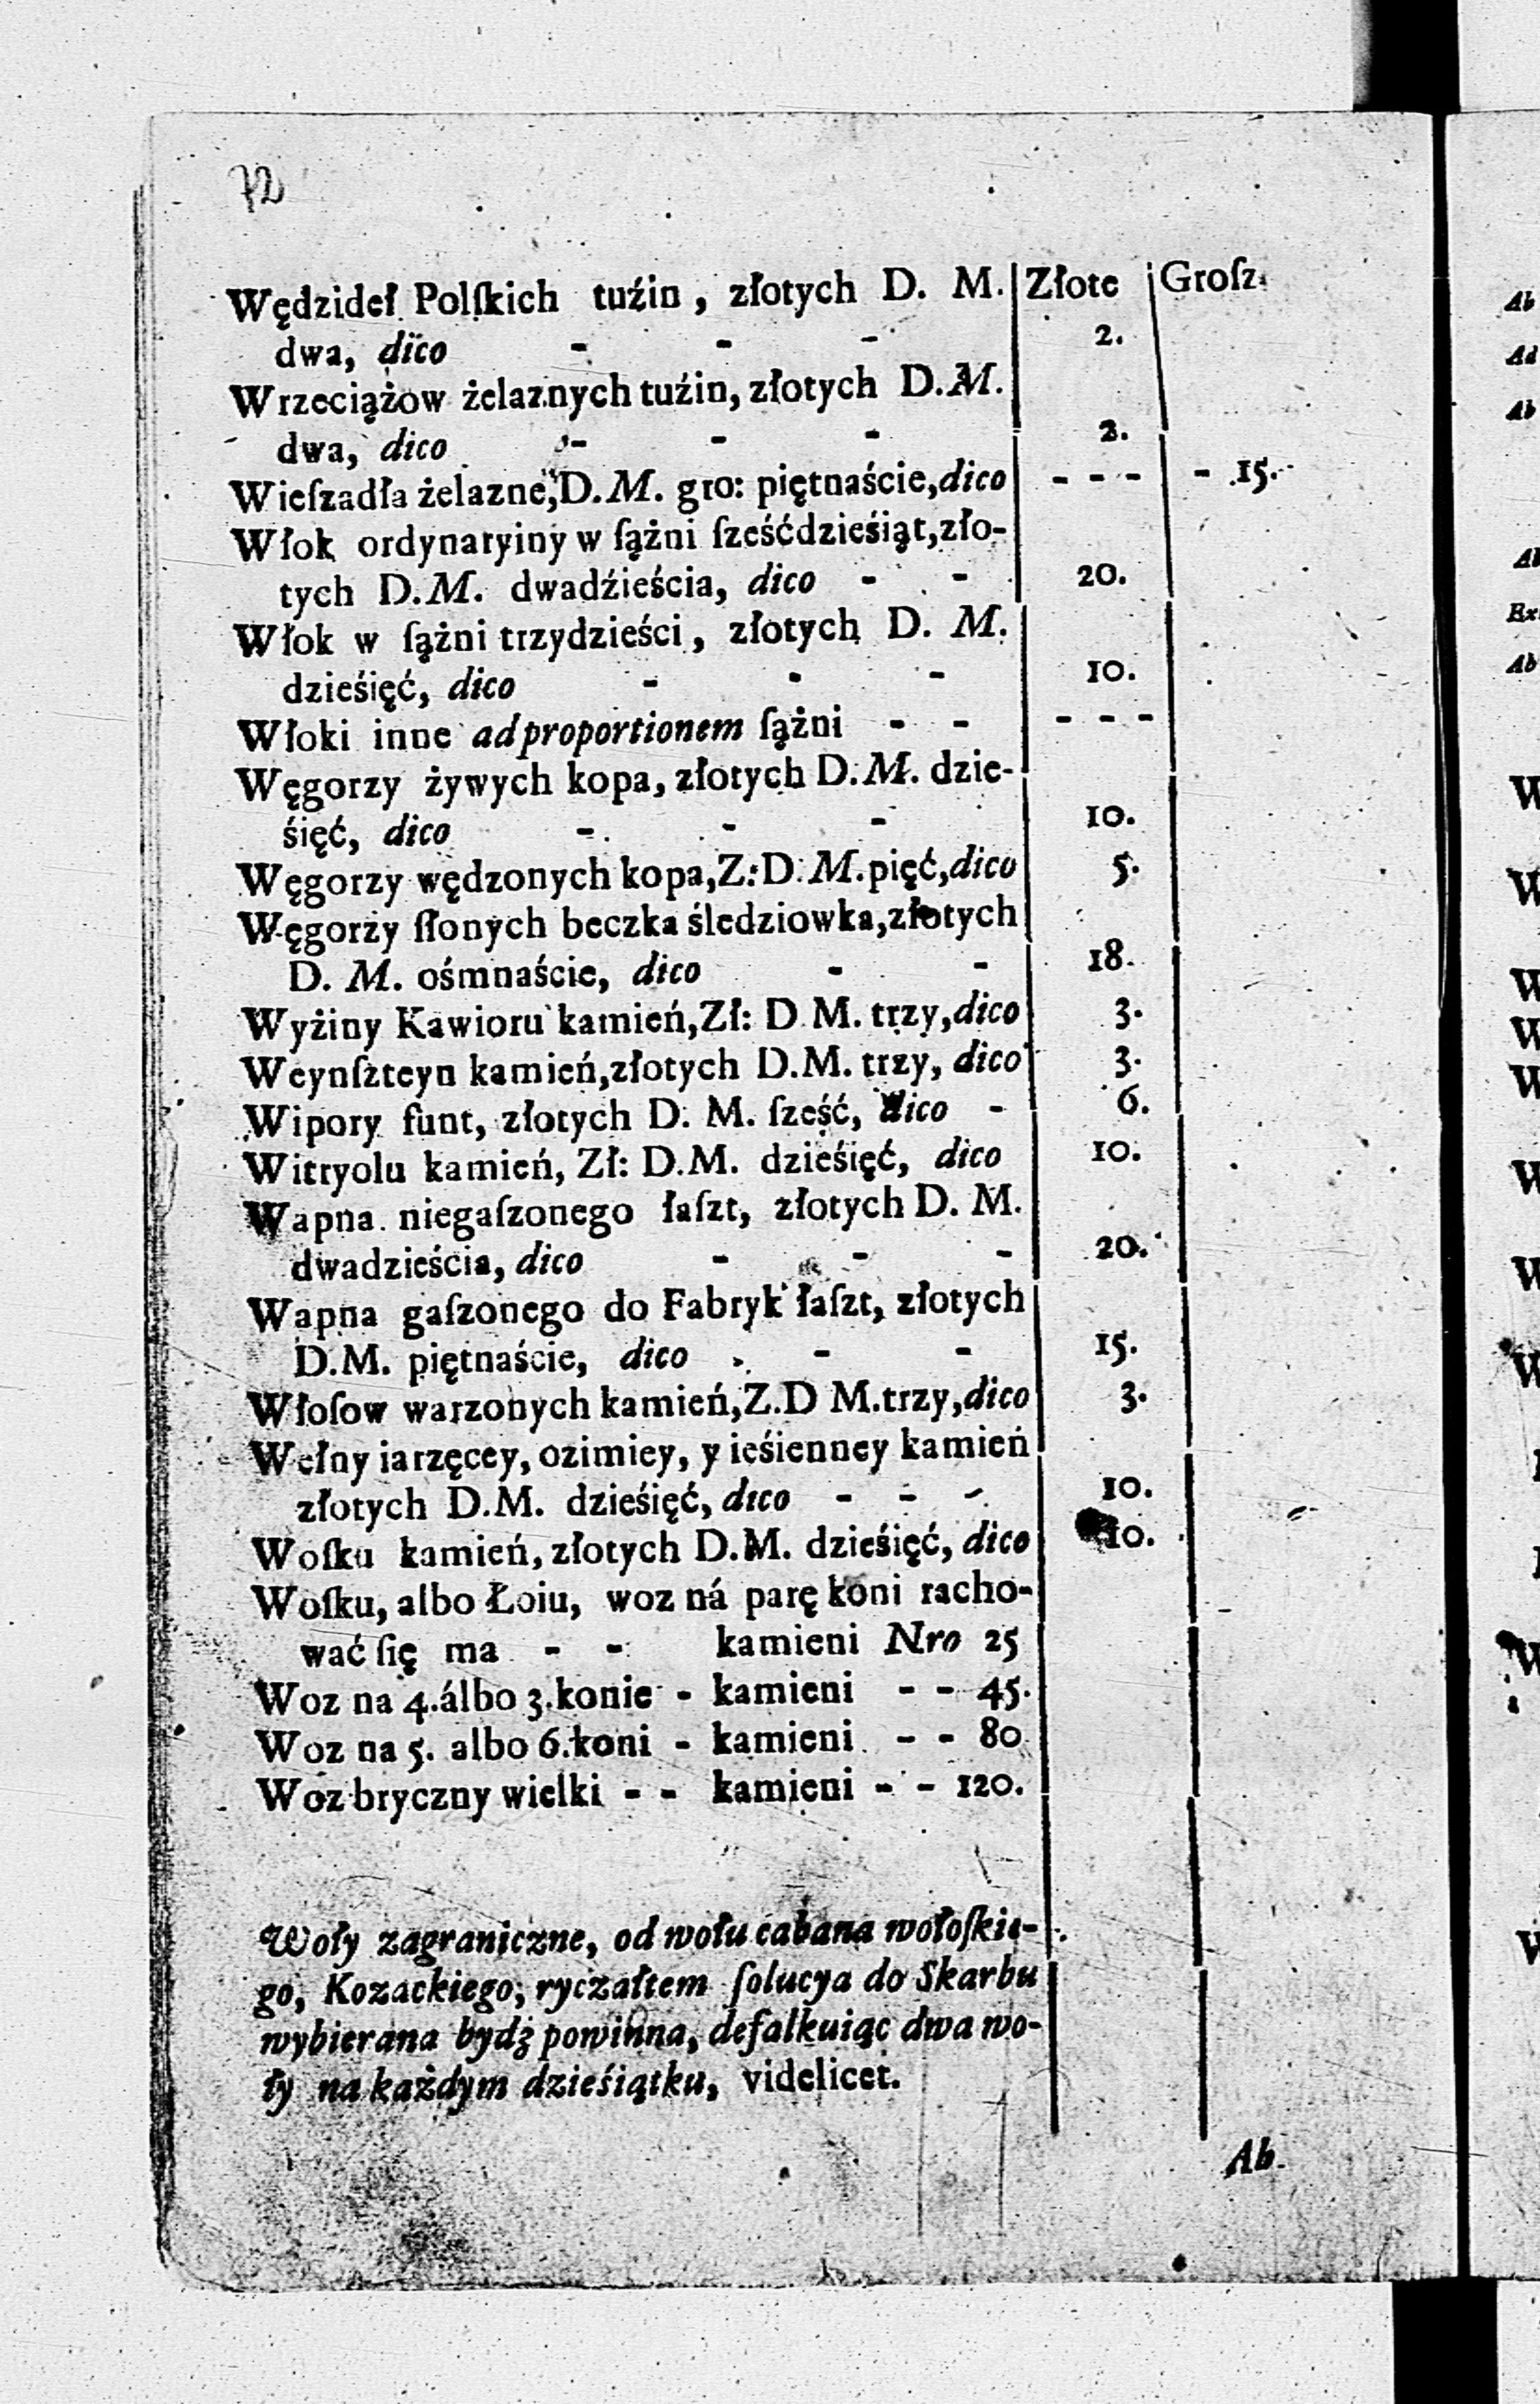 72
Wędzideł Polſkich tuźin, złotych D. M. | Złote | Groſz.
dwa, dico - - - 2.
Wrzeciążow żelaznych tuźin, złotych D. M.
dwa, dico - - - 2.
Wieſzadła żelazne, D. M. gro: piętnaście, dico - - - - 15.
Włok ordynaryiny w ſążni ſześćdzieśiąt, zło-
tych D. M. dwadźieścia, dico - - 20.
Włok w ſążni trzydzieści, złotych D. M.
dzieśięć, dico - - - 10.
Włoki inne ad proportionem ſążni - - - - -
Węgorzy żywych kopa, złotych D. M. dzie-
śięć, dico - - - 10.
Węgorzy wędzonych kopa, Z: D. M. pięć, dico 5.
Węgorzy ſłonych beczka śledziowka, złotych
D. M. ośmnaście, dico - - 18.
Wyżiny Kawioru kamień, Zł: D M. trzy, dico 3.
Weynſzteyn kamień, złotych D. M. trzy, dico 3.
Wipory funt, złotych D. M. ſześć, dico - 6.
Witryolu kamień, Zł: D. M. dzieśięć, dico 10.
Wapna niegaſzonego łaſzt, złotych D. M.
dwadzieścia, dico - - - 20.
Wapna gaſzonego do Fabryk łaſzt, złotych
D. M. piętnaście, dico - - - 15.
Włoſow warzonych kamień, Z. D M. trzy, dico 3.
Wełny iarzęcey, ozimiey, y ieśienney kamień
złotych D. M. dzieśięć, dico - - - 10.
Woſku kamień, złotych D. M. dzieśięć, dico 10.
Woſku, albo Łoiu, woz ná parę koni racho-
wać ſię ma - - kamieni Nro 25
Woz na 4. álbo 3. konie - kamieni - - 45.
Woz na 5. albo 6. koni - kamieni - - 80
Woz bryczny wielki - - kamieni - - 120.
Woły zagraniczne, od wołu cabana wołoſkie-
go, Kozackiego; ryczałtem ſolucya do Skarbu
wybierana bydź powinna, defalkuiąc dwa wo-
ły na każdym dzieśiątku, videlicet.
Ab
Ab
Ad
Ab
Ab
Ex
Ab
W
W
W
W
W
W
W
W
W
W